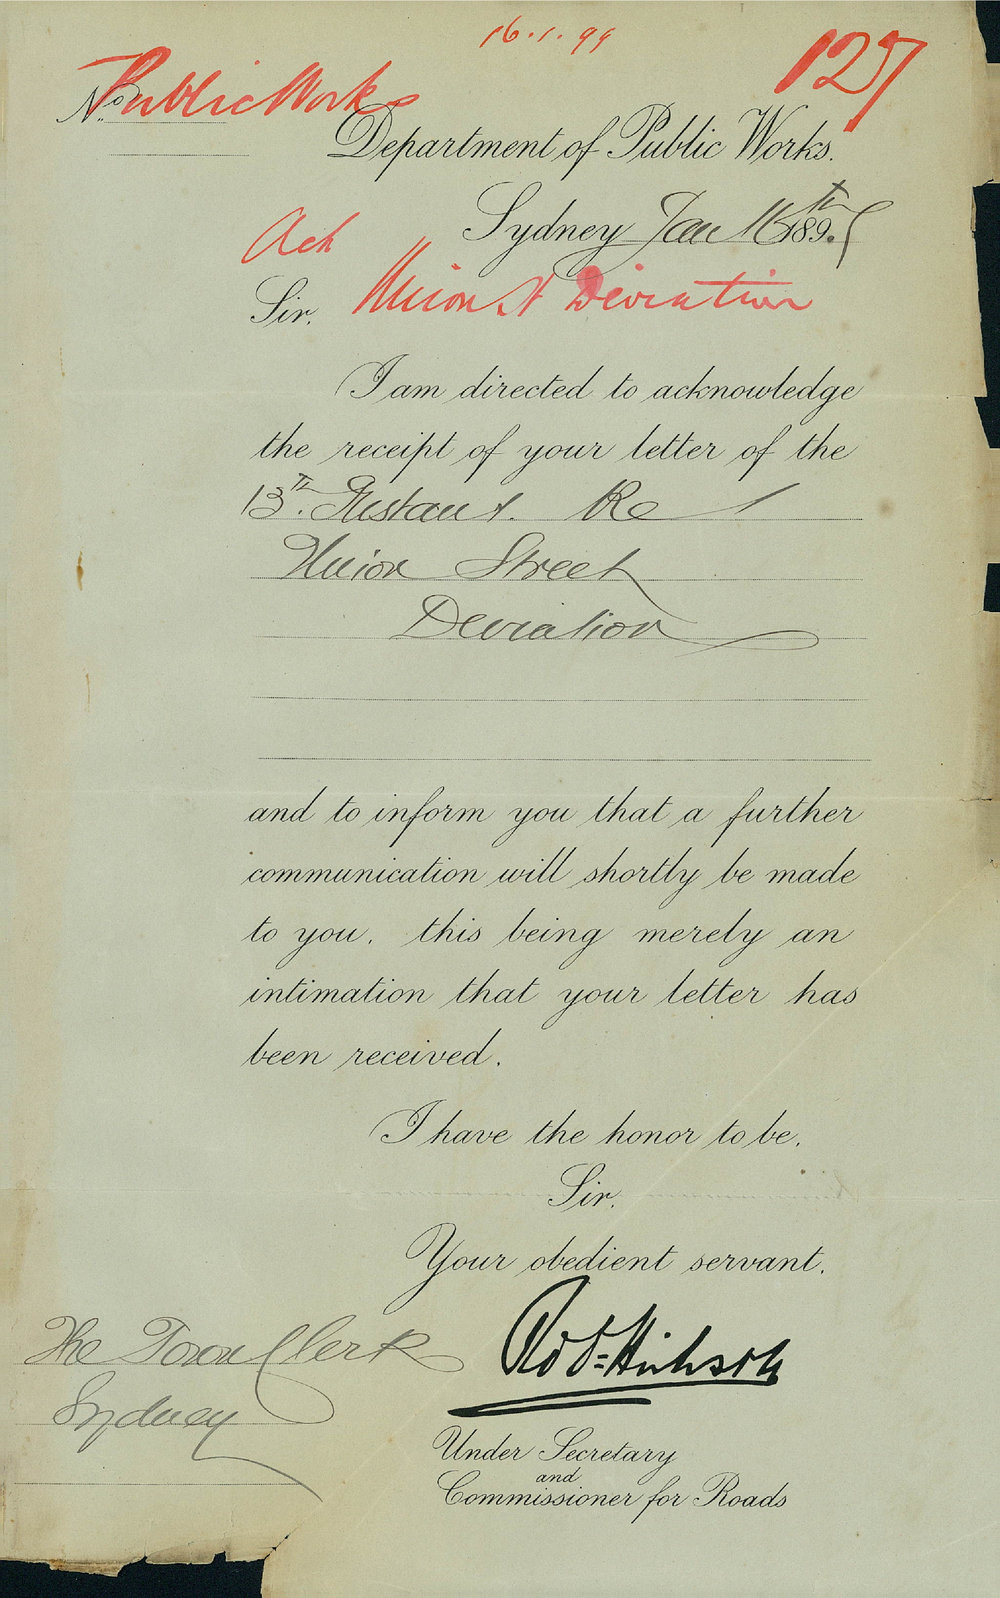 16.1.99
127
Public Works
No.
Department of Public Works.
Sydney Jan 16th 189
Ack
Union St Deviation
Sir,
I am directed to acknowledge
the receipt of your letter of the
13th. Instant. Re
Union Street
Deviation
and to inform you that a further
communication will shortly be made
to you, this being merely an
intimation that your letter has
been received.
I have the honor to be,
Sir,
Your obedient servant,
Robt Hickson
The Town Clerk
Sydney
Under Secretary
and
Commissioner for Roads